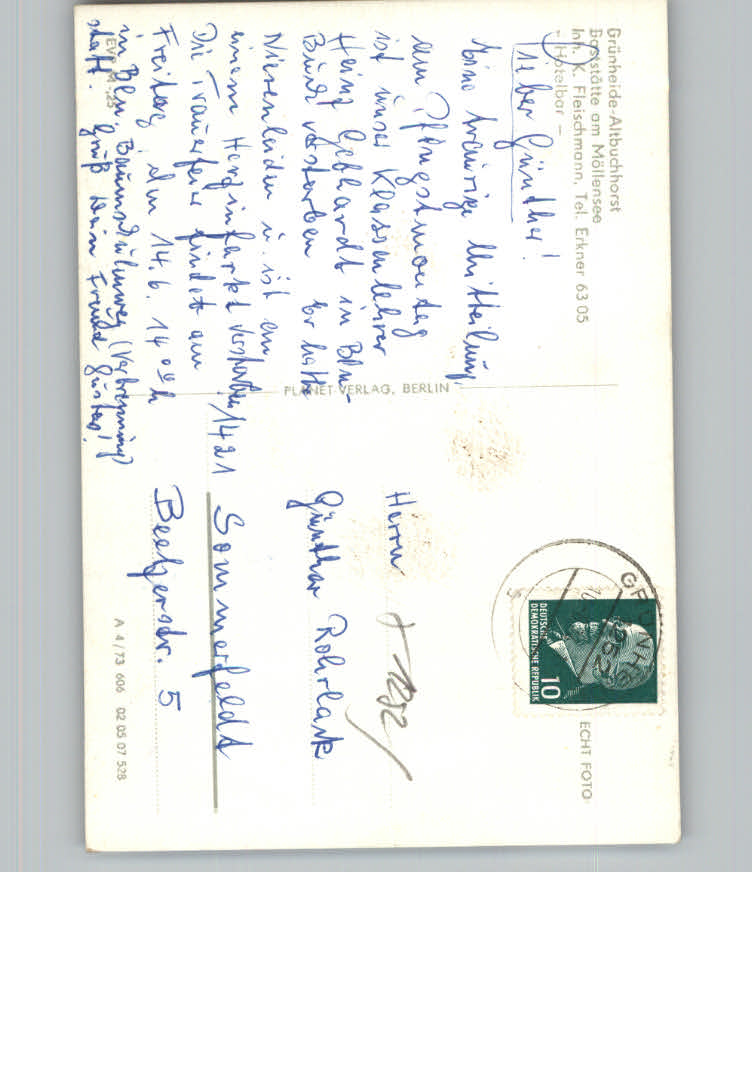 Grünheide-Altbuchhorst
Gaststätte am Möllensee
Inh. K. Fleischmann, Tel. Erkner 63 05
- Hotelbar -
Lieber Günther!
Eine traurige Mitteilung
am Pfingstmontag
ist unser Klassenlehrer
Heinz Gebhardt in Bln-
Buch verstorben er hatte
Nierenleiden u. ist an
einem Herzinfarkt verstorben
Die Trauerfeier findet am
Freitag, den 14.6. 14 00 h
in Bln. Baumschulenweg (Verbrennung)
statt. Gruß Dein Freund Gustav!
EVP M -,25
PLANET-VERLAG, BERLIN
ECHT FOTO
DEUTSCHE
DEMOKRATISCHE REPUBLIK
10
1252
Herrn
Günther Rohrlack
1421
Sommerfeldt
Beetzerstr. 5
A 4/73 606 02 05 07 528